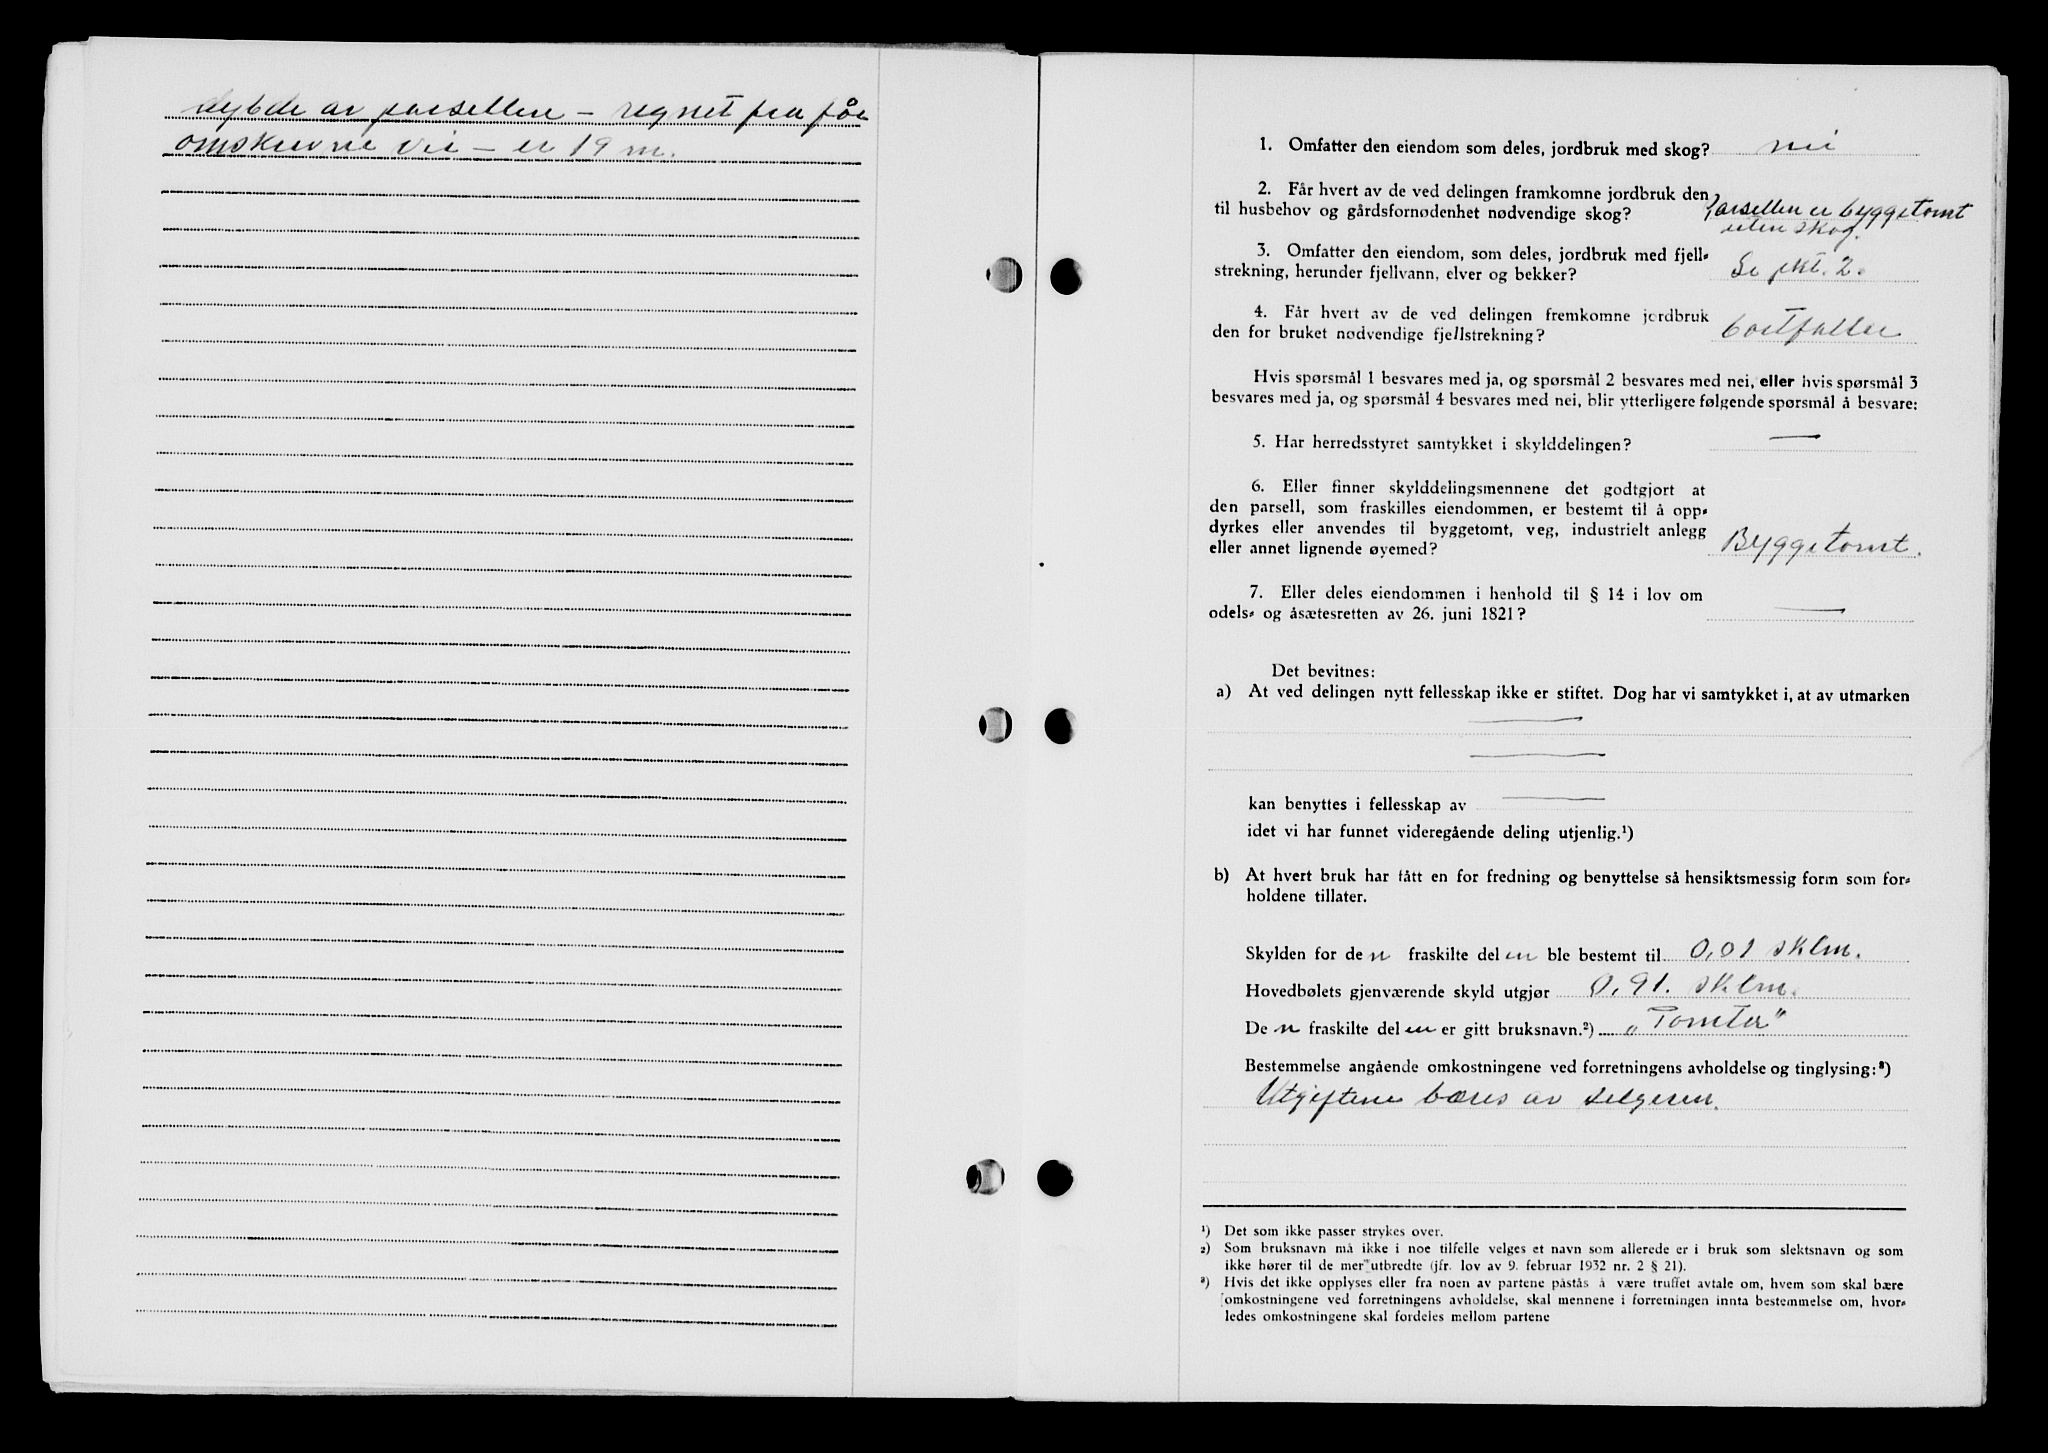 dybde av parsellen – regnet fra før
omskrevne vei – er 19 m.
1. Omfatter den eiendom som deles, jordbruk med skog? nei
2. Får hvert av de ved delingen framkomne jordbruk den
til husbehov og gårdsfornødenhet nødvendige skog? Parsellen er byggetomt
uten skog.
3. Omfatter den eiendom, som deles, jordbruk med fjell-
strekning, herunder fjellvann, elver og bekker? Se pkt. 2.
4. Får hvert av de ved delingen fremkomne jordbruk
den for bruket nødvendige fjellstrekning? bortfaller
Hvis spørsmål 1 besvares med ja, og spørsmål 2 besvares med nei, eller hvis spørsmål 3
besvares med ja, og spørsmål 4 besvares med nei, blir ytterligere følgende spørsmål å besvare:
5. Har herredsstyret samtykket i skylddelingen? —
6. Eller finner skylddelingsmennene det godtgjort at
den parsell, som fraskilles eiendommen, er bestemt til å opp-
dyrkes eller anvendes til byggetomt, veg, industrielt anlegg
eller annet lignende øyemed? Byggetomt.
7. Eller deles eiendommen i henhold til § 14 i lov om
odels- og åsætesretten av 26. juni 1821? —
Det bevitnes:
a) At ved delingen nytt fellesskap ikke er stiftet. Dog har vi samtykket i, at av utmarken
—
—
kan benyttes i fellesskap av —
idet vi har funnet videregående deling utjenlig.¹)
b) At hvert bruk har fått en for fredning og benyttelse så hensiktsmessig form som for-
holdene tillater.
Skylden for den fraskilte delen ble bestemt til 0,01 sklm.
Hovedbølets gjenværende skyld utgjør 0,91. sklm.
Den fraskilte delen er gitt bruksnavn.²) „Tomter”
Bestemmelse angående omkostningene ved forretningens avholdelse og tinglysing:³)
Utgiftene bæres av selgeren.
¹) Det som ikke passer strykes over.
²) Som bruksnavn må ikke i noe tilfelle velges et navn som allerede er i bruk som slektsnavn og som
ikke hører til de mer utbredte (jfr. lov av 9. februar 1932 nr. 2 § 21).
³) Hvis det ikke opplyses eller fra noen av partene påstås å være truffet avtale om, hvem som skal bære
omkostningene ved forretningens avholdelse, skal mennene i forretningen innta bestemmelse om, hvor-
ledes omkostningene skal fordeles mellom partene